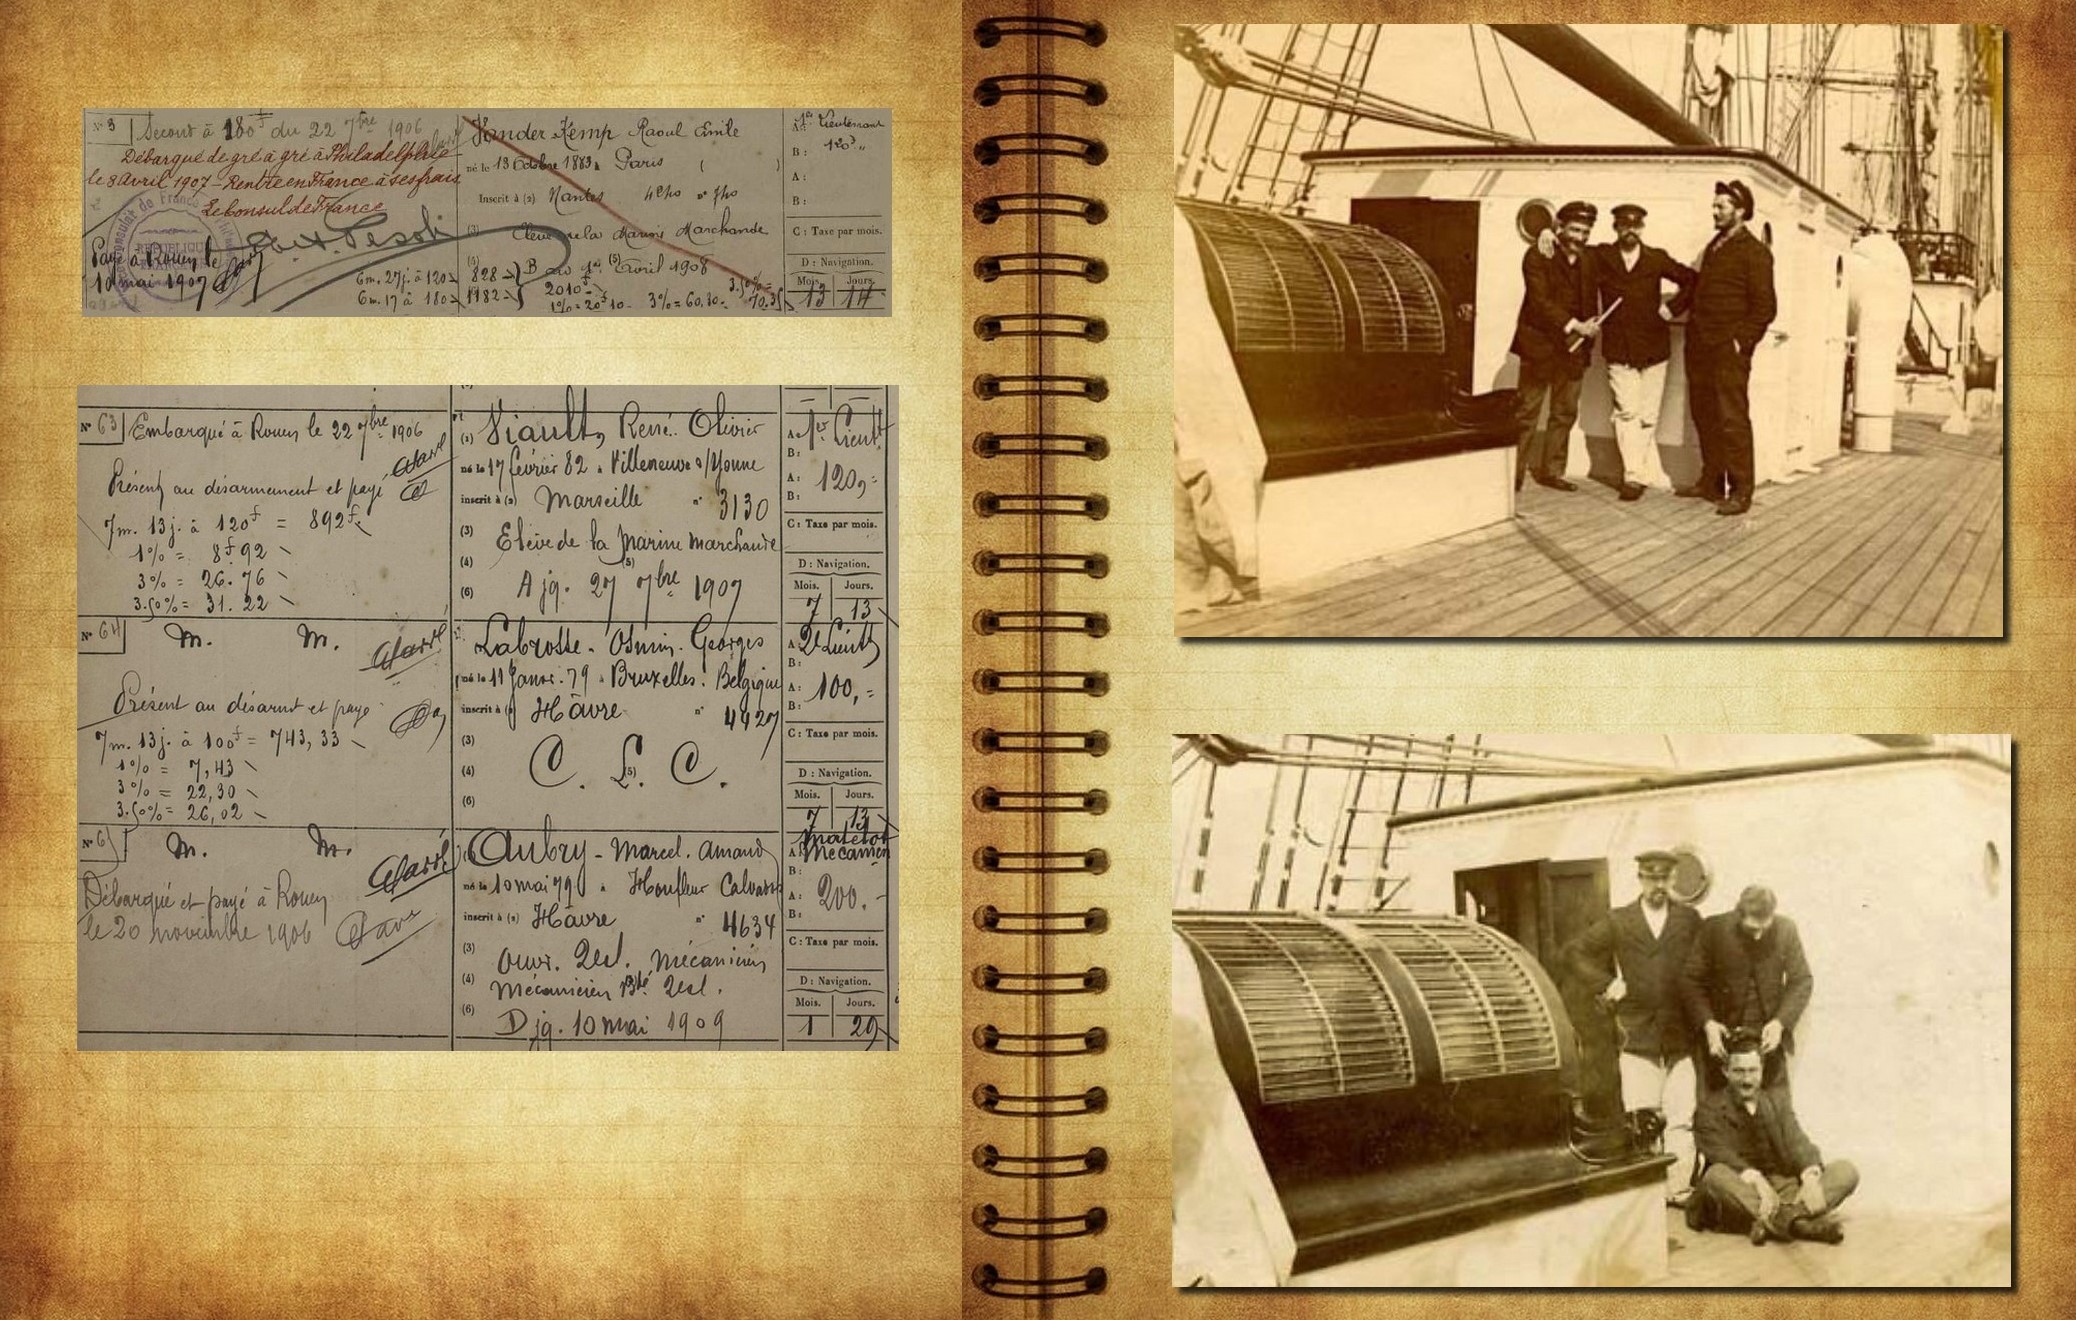 N° 3 Second à 180f du 22 7bre 1906
Débarqué de gré à gré à Philadelphie
le 8 Avril 1907 - Rentre en France à ses frais
Le Consul de France
Consulat de France
REPUBLIQUE FRANCAISE
Payé à Rouen le
10 mai 1907
6m. 27j. à 120 828
6m. 17 à 180 1182
Vander Kemp Raoul Emile
né le 13 Octobre 1883 à Paris ( )
Inscrit à (2) Nantes n° 740
(3) Elève de la Marine Marchande
(4) (5)
B au 1er Avril 1908
2010
1% = 20f10 - 3% = 60,30 - 3.50% = 70.35
1er Lieutenant
A:
B: 120f
A:
B:
C: Taxe par mois.
D: Navigation.
Mois Jours
13 14
N° 63 Embarqué à Rouen le 22 7bre 1906
Présent au désarmement et payé
7m. 13j. à 120f = 892f
1% = 8f92
3% = 26.76
3.50% = 31.22
(1) Viault, René. Olivier
né le 17 février 82 à Villeneuve s/Yonne
inscrit à (2) Marseille n° 3130
(3) Elève de la Marine marchande
(4) (5)
(6) A jq. 27 7bre 1907
A: 1er Lieutt
B:
A: 120,=
B:
C: Taxe par mois.
D: Navigation.
Mois. Jours.
7 13
N° 64 M. M.
Présent au désarmt et payé
7m. 13j. à 100f = 743,33
1% = 7,43
3% = 22,30
3.50% = 26,02
Labrosse - Osmin - Georges
né le 11 Janvr. 79 à Bruxelles. Belgique
inscrit à (2) Hâvre n° 4427
(3)
(4) C. L. C. (5)
(6)
A: 2e Lieutt
B:
A: 100,=
B:
C: Taxe par mois.
D: Navigation.
Mois. Jours.
7 13
N° M. M.
Débarqué et payé à Rouen
le 20 novembre 1906
Aubry - Marcel. Amand
né le 10 mai 79 à Honfleur Calvados
inscrit à (2) Hâvre n° 4634
(3) Ouvr. mécanicien
(4) Mécanicien Bté
(6) D jq. 10 mai 1909
Matelot
A: Mécanicien
B:
A: 200.-
B:
C: Taxe par mois.
D: Navigation.
Mois. Jours.
1 29